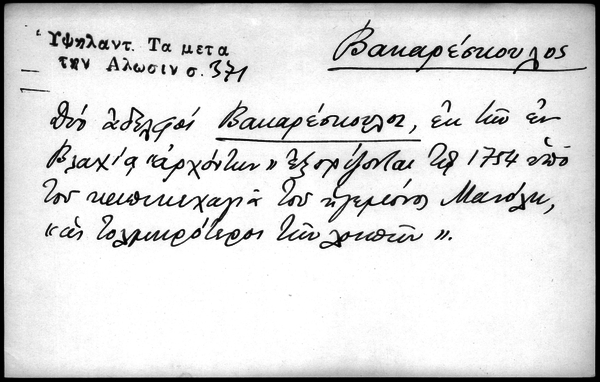 Ὑψηλαντ. Τα μετα
την Αλωσιν σ. 371
Βακαρέσκουλος
Δύο ἀδελφοὶ Βακαρέσκουλοι, ἐκ τῶν ἐν
Βλαχίᾳ «ἀρχόντων» ἐξορίζονται τῷ 1754 ὑπὸ
τοῦ καπικεχαγιᾶ τοῦ ἡγεμόνος Μανόλη,
«ὡς τολμηρότεροι τῶν λοιπῶν».